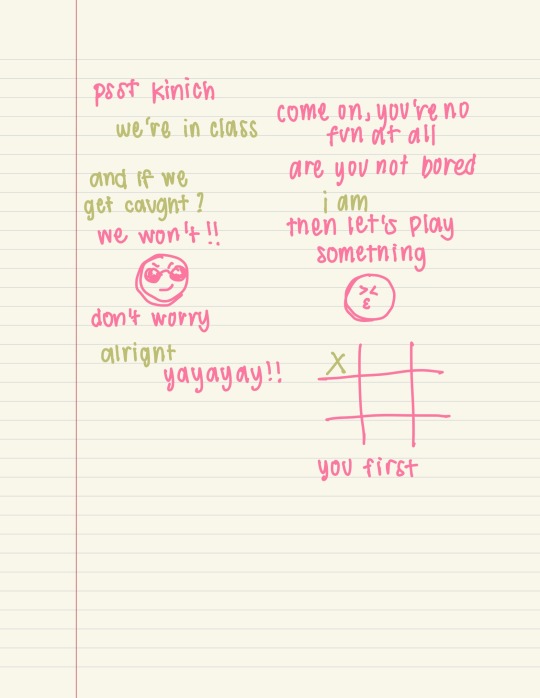 psst kinich
we're in class
come on, you're no
fun at all
are you not bored
i am
then let's play
something
and if we
get caught?
we won't!!
don't worry
alright
yayayay!!
X
you first